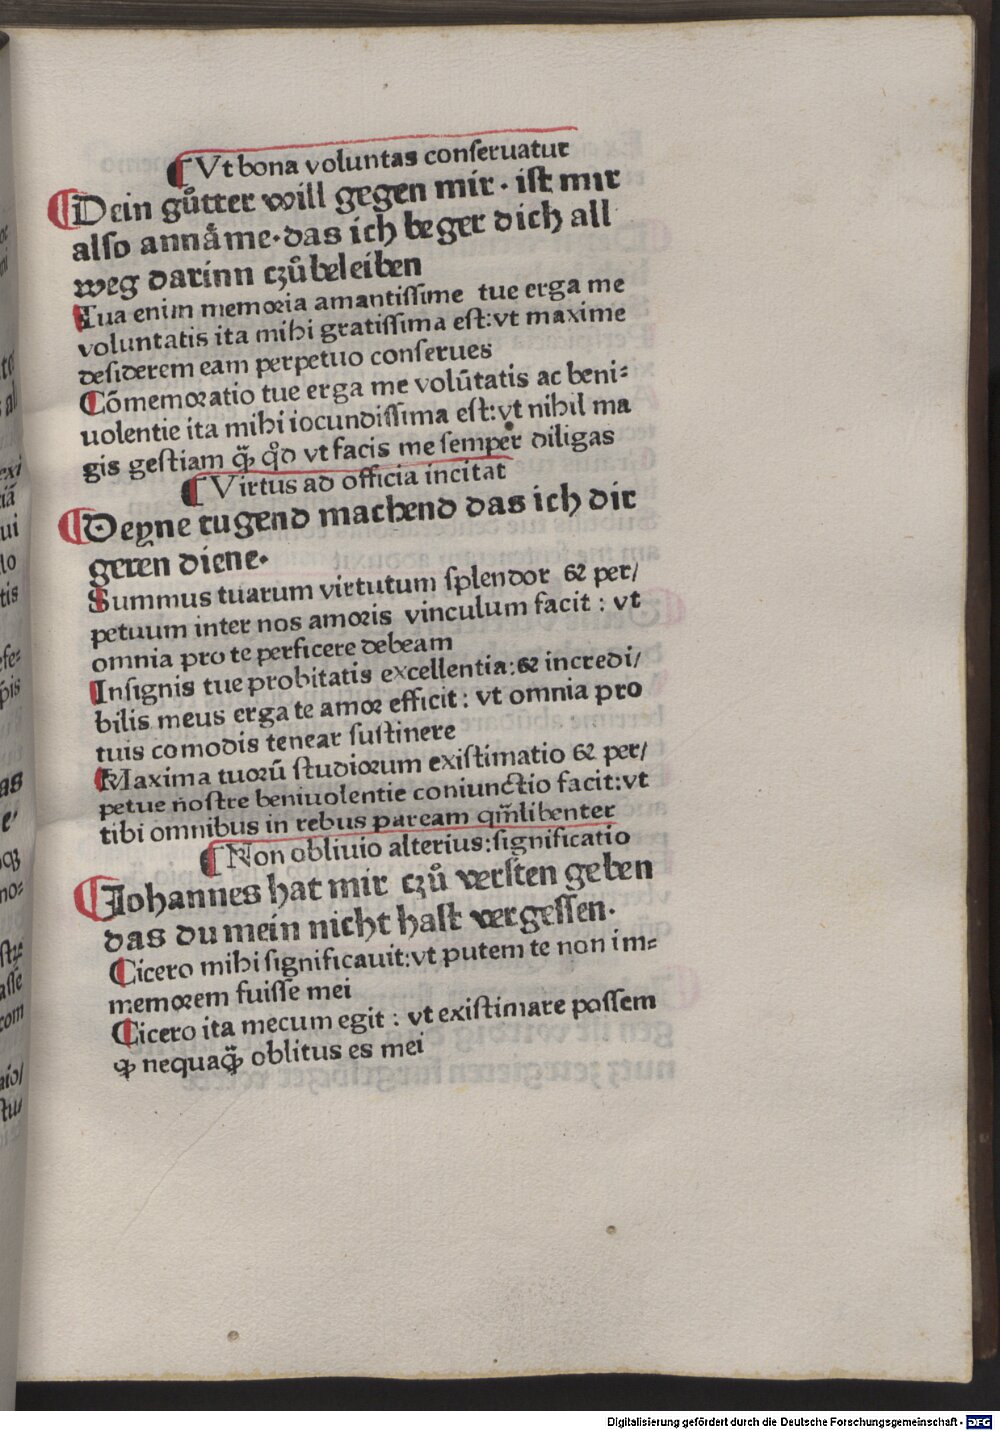 ¶ Vt bona voluntas conſeruatur
¶ Dein gůtter will gegen mir · iſt mir
alſo annåme · das ich beger dich all
weg darinn czůbeleiben
Tua enim memoꝛia amantiſſime tue erga me
voluntatis ita mihi gratiſſima eſt: vt maxime
deſiderem eam perpetuo conſerues
Cōmemoꝛatio tue erga me volūtatis ac beni⸗
uolentie ita mihi iocundiſſima eſt: vt nihil ma
gis geſtiam ꝙ̄ qd̊ vt facis me ſemper diligas
¶ Virtus ad officia incitat
¶ Deyne tugend machend das ich dir
geren diene·
Summus tuarum virtutum ſplendor ⁊ per/
petuum inter nos amoꝛis vinculum facit : vt
omnia pro te perficere debeam
Inſignis tue probitatis excellentia: ⁊ incredi/
bilis meus erga te amoꝛ efficit : vt omnia pro
tuis comodis tenear ſuſtinere
Maxima tuoꝛū ſtudioꝛum exiſtimatio ⁊ per/
petue noſtre beniuolentie coniunctio facit: vt
tibi omnibus in rebus paream qm̄libenter
¶ Non obliuio alterius: ſignificatio
¶ Johannes hat mir czů verſten geben
das du mein nicht haſt vergeſſen·
Cicero mihi ſignificauit: vt putem te non im⸗
memoꝛem fuiſſe mei
Cicero ita mecum egit : vt exiſtimare poſſem
ꝙ nequaꝙ̄ oblitus es mei
Digitalisierung gefördert durch die Deutsche Forschungsgemeinschaft - DFG